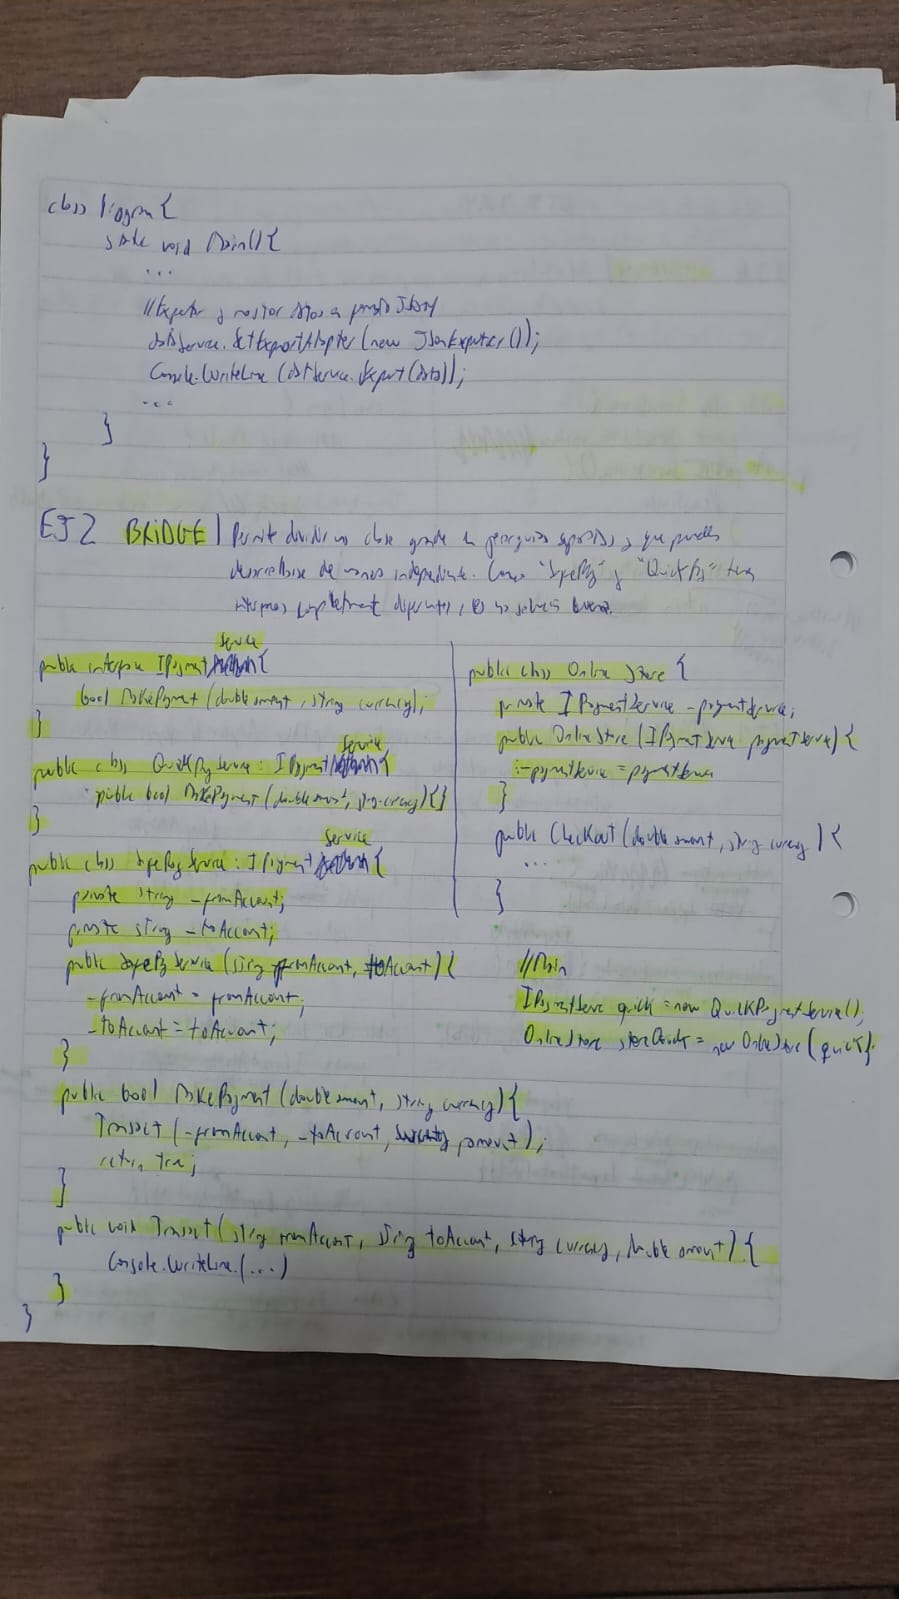 class Program{
static void Main(){
...
//Exportar y mostrar datos a formato Json
dataService.SetExportAdapter(new JsonExporter());
Console.WriteLine(dataService.Export(data));
...
}
}
EJ2 BRIDGE | Permite dividir una clase grande en jerarquías separadas y que puedan
desarrollarse de manera independiente. Como "SafePay" y "QuickPay" tienen
interfaces
Service
public interface IPayment{
bool MakePayment(double amount, string currency);
}
Service
public class QuickPayService : IPayment{
public bool MakePayment(double amount, string currency){}
}
Service
public class SafePayService : IPayment{
private string _fromAccount;
private string _toAccount;
public SafePayService(string fromAccount, toAccount){
_fromAccount = fromAccount;
_toAccount = toAccount;
}
public bool MakePayment(double amount, string currency){
Transact(_fromAccount, _toAccount,
return true;
}
public void Transact(string fromAccount, string toAccount, string currency, double amount){
Console.WriteLine.(...)
}
}
public class Online Store {
private IPaymentService _paymentService;
public OnlineStore(IPaymentService paymentService){
_paymentService = paymentService
}
public Checkout(double amount, string currency){
...
}
//Main
IPaymentService quick = new QuickPaymentService();
OnlineStore storeQuick = new OnlineStore(quick);